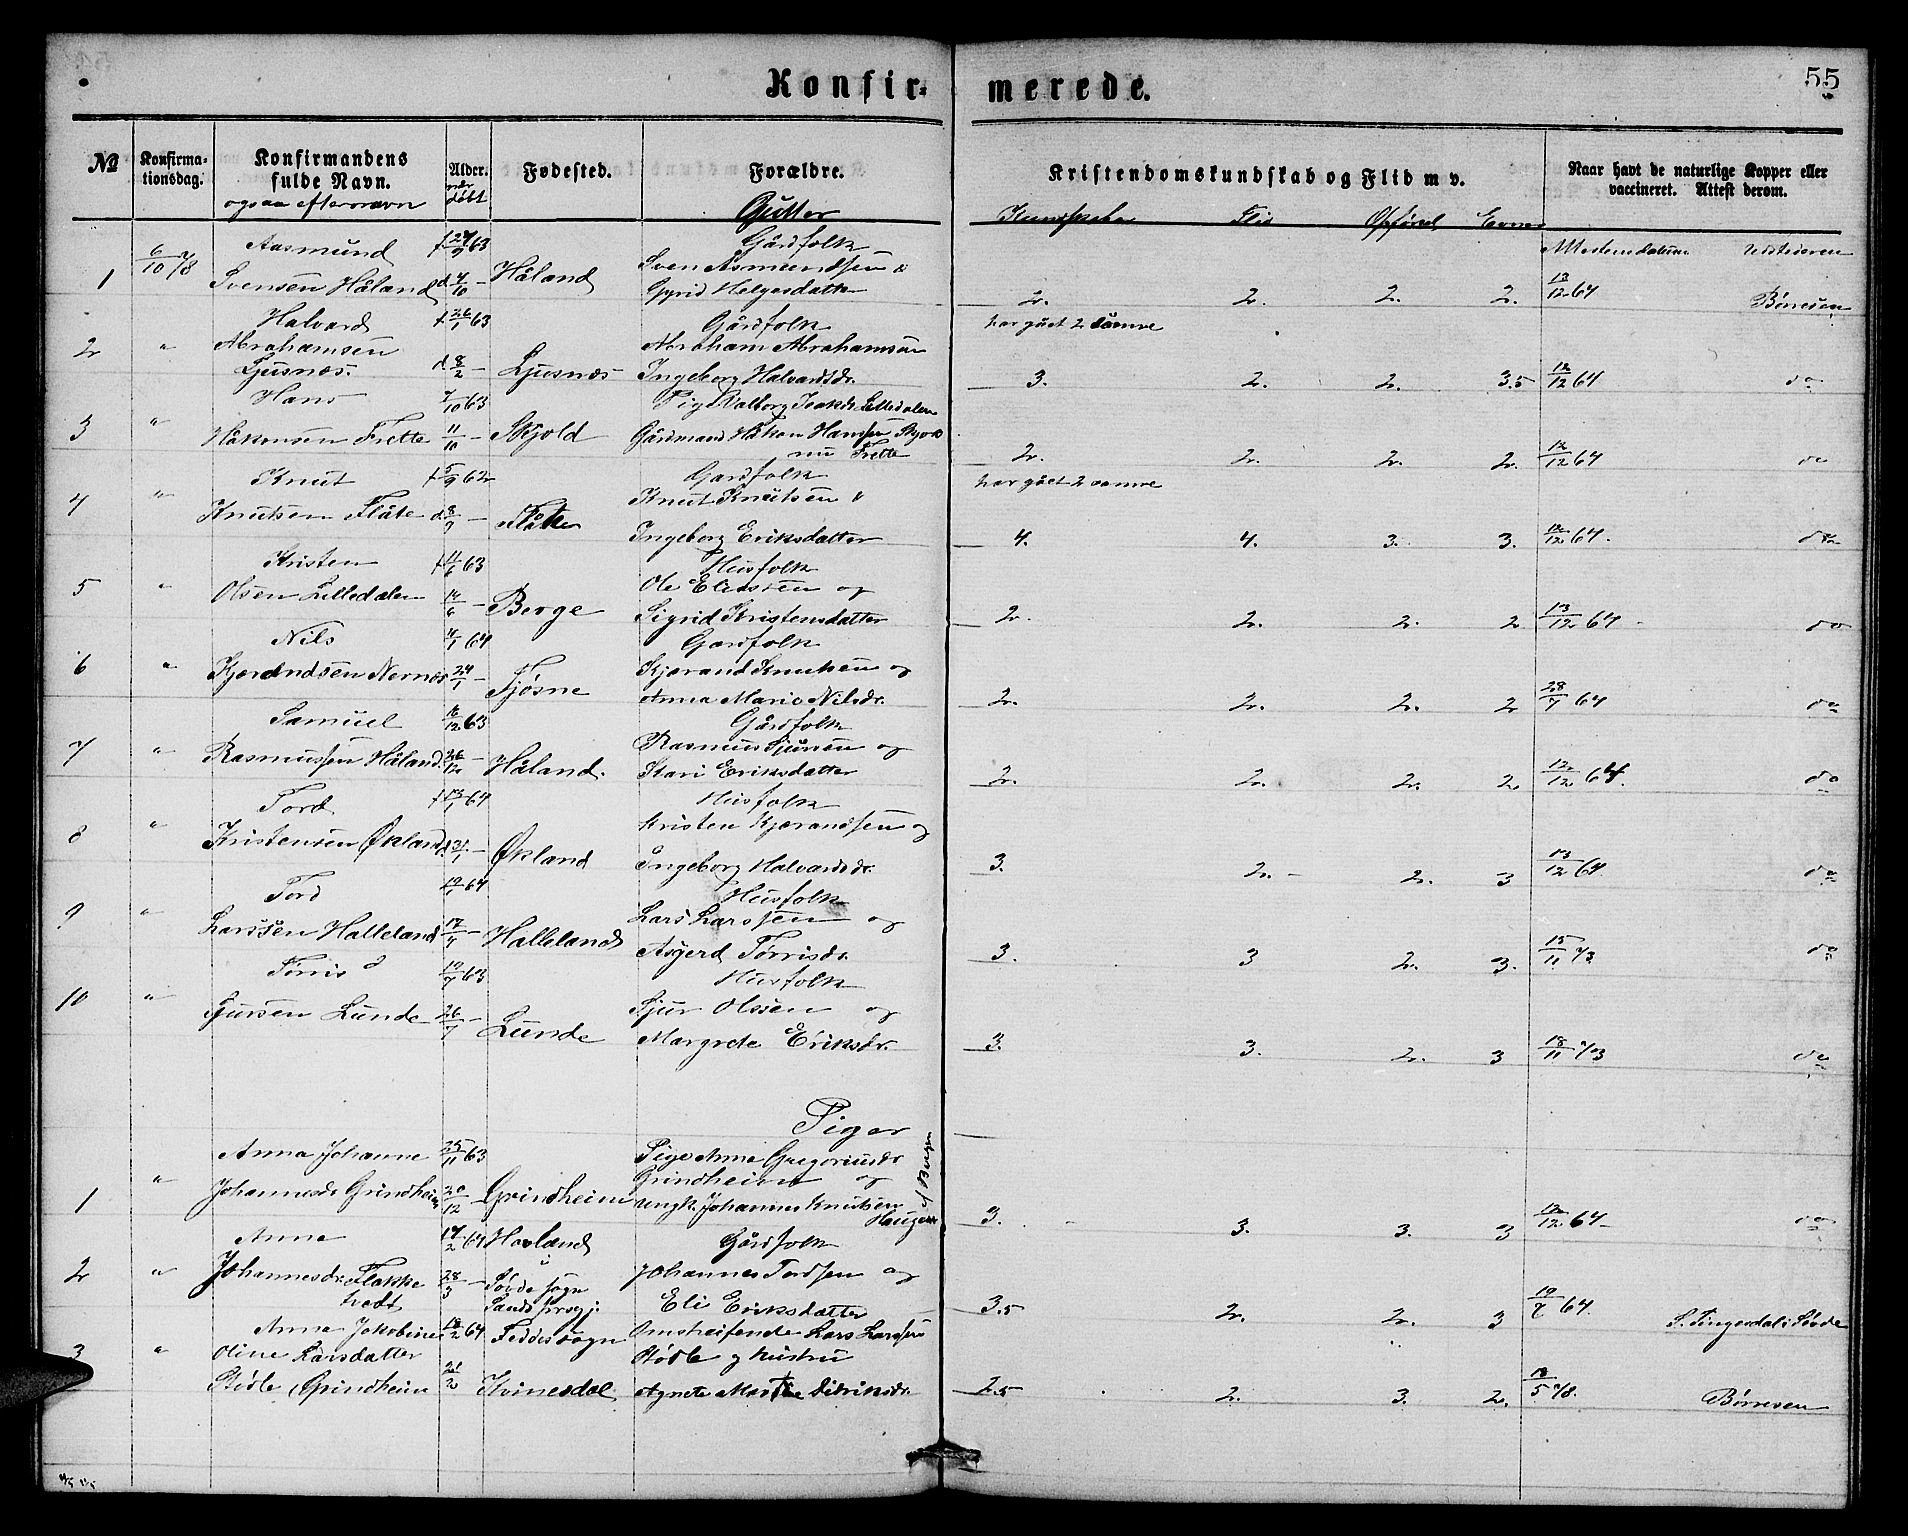 Konfir- merede. 55
№ Konfirma-tionsdag. Konfirmandens fulde Navn. Alder. Fødested. Forældre. Kristendomskundskab og Flid m v. Naar havt de naturlige Kopper eller vaccineret. Attest derom.
ogsaa efternavn når døbt Gutter Kundskaber Flid Opførsel Evner
Attestens datum Udstederen
1 6/10 78 Aasmund f 27/9 63 Gårdfolk
Svensen Håland d 4/10 – Håland Sven Asmundsen &
Gyrid Helgesdatter 2. 2. 2. 2. 13/12 64 Børresen
Halvard f 26/1 63 Gårdfolk har gået 2 somre
2 " Abrahamsen Abraham Abrahamsen
Ljusnæs. d 8/2 – Ljusnæs Ingeborg Halvardsdr. 3. 2. 2. 3.5 12/12 64 do
Hans 7/10 63 Pige Valborg Isaksdr Lilledalen
3 " Håkonsen Frette 11/10 – Skjold Gårdmand Håkon Hansen Skjold
nu Frette 2. 2. 2. 2. 12/12 64 do
Knut f 5/9 62 Gårdfolk har gået 2 somre
4 " Knutsen Flåte d 8/9 – Flåte Knut Knutsen &
Ingeborg Eriksdatter 4. 4. 3. 3. 12/12 64. do
Kristen f 11/6 63 Husfolk
5 " Olsen Lilledalen 14/6 – Berge Ole Eliassen og
Sigrid Kristensdatter 2. 2. 2. 2 13/12 64 do
Nils 4/1 64 Gårdfolk
6 " Kjerandsen Nernæs 24/1 – Tjøsne Kjerand Knutsen og
Anna Marie Nilsdr. 2. 2. 2. 2 28/7 64 do
Samuel 16/12 63 Gårdfolk
7 " Rasmussen Håland. 26/12 – Håland. Rasmus Sjursen og
Kari Eriksdatter 2. 2. 2. 2 12/12 64. do
Tord f 13/1 64 Husfolk
8 " Kristensen Økland d 31/1 – Økland Kristen Kjerandsen og
Ingeborg Halvardsdr. 3. 2. – 2. 3 13/12 64. do
Tord 64 Husfolk
9 " Larssen Halleland – Halleland Lars Larssen og
Asgerd Tørrisdr. 3. 3 2. 3. 15/11 73 do
Tørris 19/7 63 Husfolk
10 " Sjursen Lunde 26/7 – Lunde Sjur Olssen og
Margrete Eriksdr. 3. 3. 2. 3 18/11 73 do
Piger
Anna Johanne 25/11 63 Pige Anna Gregoriusdr
1 " Johannesdr Grindheim 20/12 – Grindheim Grindheim og
Ungk. Johannes Knutsen
Haugen af Bergen 3. 3. 3. 3 12/12 64 do
Anna 17/2 64 Hovland Gårdfolk
2 " Johannesdr. Flakke 28/3 – i Søvde sogn Johannes Tordsen og
tvedt Sands prsgj. Eli Eriksdatter 3.5 2. 2. 3 19/7 64. S. Tingerdal i Søvde
Anna Jakobine 18/2 64 Feddes sogn Omstreifende Lars Larssen
3 " Oline Larsdatter Stødle og hustru
Stødle, Grindheim 21/2 Kvinesdal Agnete Marthe Didriksdr. 2.5 2. 3. 2. 78. Børresen